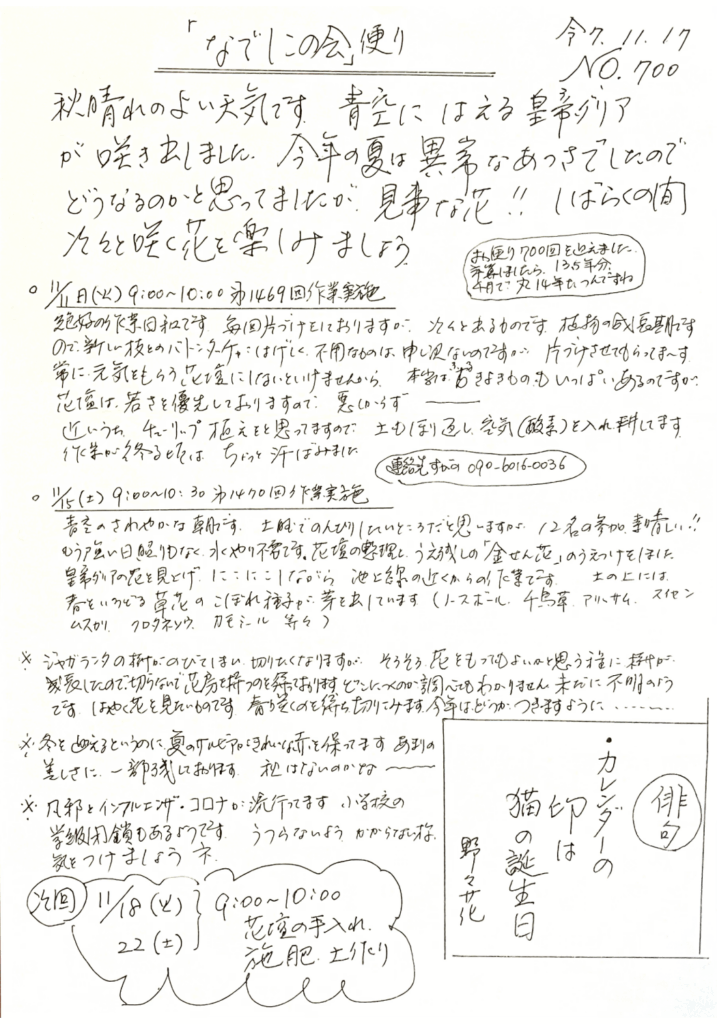 「なでしこの会」便り
令7.11.17
NO.700
秋晴れのよい天気です 青空に はえる皇帝ダリア
が 咲き出しました. 今年の夏は 異常なあつさでしたので
どうなるのかと思ってましたが. 見事な花!! しばらくの間
次々と咲く花を楽しみましょう
お便り700回を迎えました.
13.5年分.
4月で丸14年たつんですね
○ 11/11日(火) 9:00~10:00 第1469回作業実施
絶好の作業日和です 毎回片づけをしておりますが. 次々と出るものです. 植物の成長期です
ので. 新しい枝とのバトンタッチははげしく. 不用なものは. 申し訳ないのですが 片づけさせてもらってま~す
常に 元気をもらう花壇にしないといけませんから. 本当は 古きよきものも いっぱいあるのですが.
花壇は. 若さを優先しておりますので 悪しからず ――
近いうち. チューリップ 植えをと思ってますので 土もほり返し. 空気(酸素)を入れ耕してます
作業が終る頃は ちょっと汗ばみました
連絡先すがの 090-6016-0036
○ 11/15(土) 9:00~10:30 第1470回作業実施
青空のさわやかな朝です. 土曜でのんびりしたいところだと思いますが. 12名の参加. 素晴しい!!
もう強い日照りもなく. 水やり不要です. 花壇の整理と. うえ残しの「金せん花」のうえつけをしました
皇帝ダリアの花を見上げ. にこにこしながら 池上線の近くからの作業です. 土の上には
春をいろどる草花の こぼれ種子が 芽を出しています (ノースポール. 千鳥草. アリッサム. スイセン
ムスカリ クロタネソウ. カモミール 等々)
※ ジャカランタの樹がのびてしまい. 切りたくなりますが. そろそろ. 花をもってもよいかと思う程に樹が.
成長したので. 切らないで花房を持つのを待っております. どこにつくのか調べてもわかりません 未だに不明のよう
です. はやく花を見たいものです 春に咲くのを待ち切りにみます. 今年はどうか. つきますように ........
※ 冬を迎えるというのに. 夏のサルビアがきれいな赤を保ってます あまりの
美しさに. 一部残しております. 秋はないのかな ――
※ 風邪とインフルエンザ・コロナが流行ってます 小学校の
学級閉鎖もあるようです. うつらないよう かからない様.
気をつけましょうネ.
次回
11/18(火)
22(土)
9:00~10:00
花壇の手入れ.
施肥. 土作り
俳句
・カレンダーの
印は
猫の誕生日
野々花